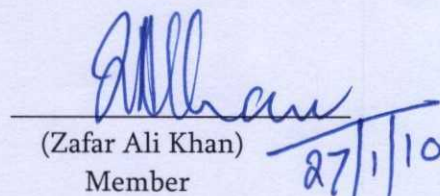 (Zafar Ali Khan)
Member
27/1/10